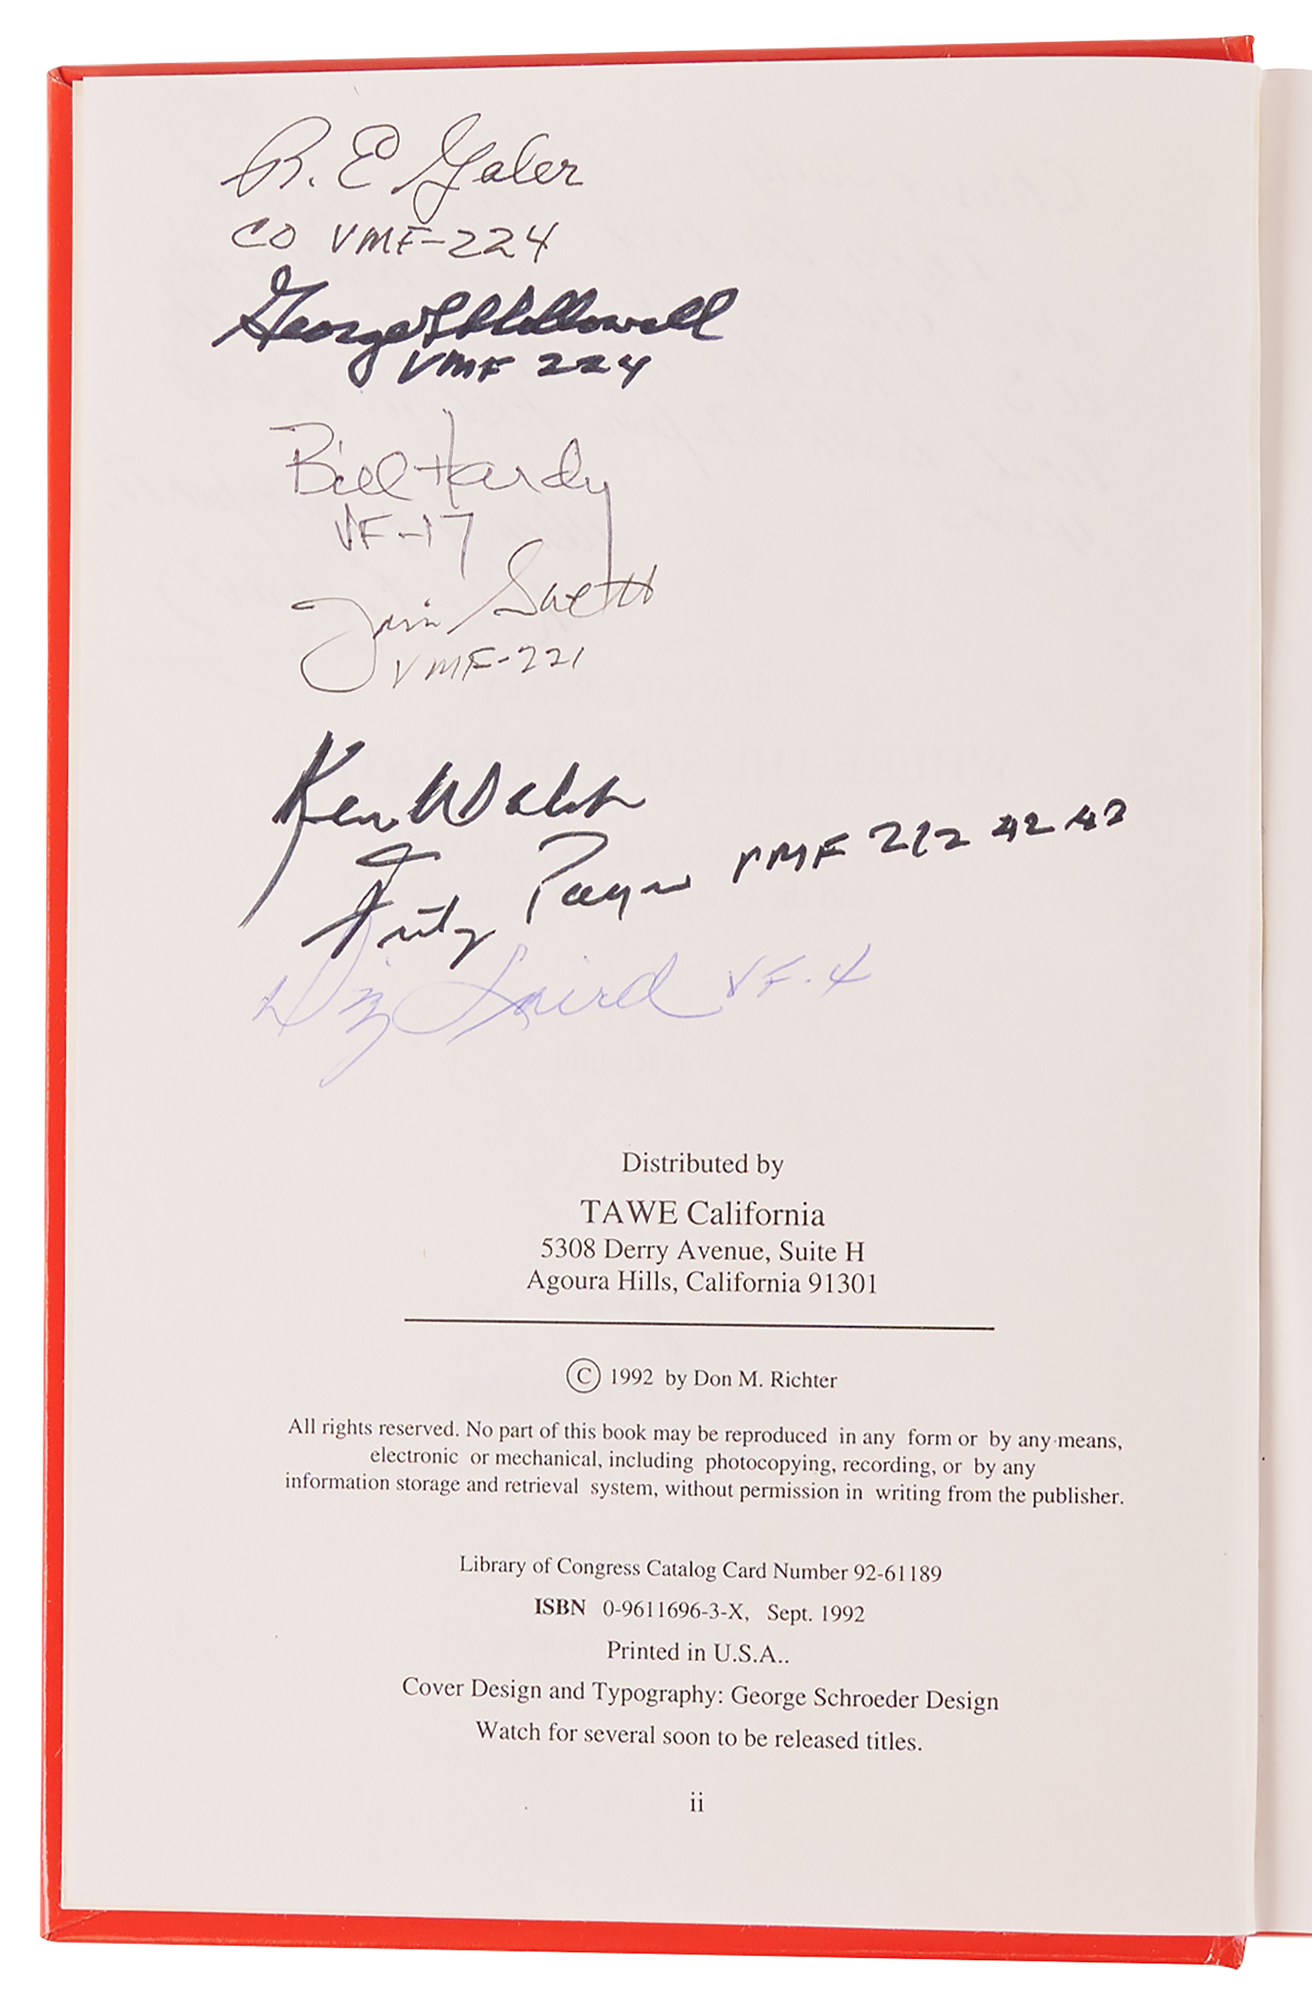 R. E Galer
CO VMF-224
George L Hollowell
VMF 224
Bill Hardy
VF-17
Jim Swett
VMF-221
Ken Walsh
Fritz Payne VMF 212 42 43
Diz Laird VF-4
Distributed by
TAWE California
5308 Derry Avenue, Suite H
Agoura Hills, California 91301
© 1992 by Don M. Richter
All rights reserved. No part of this book may be reproduced in any form or by any means,
electronic or mechanical, including photocopying, recording, or by any
information storage and retrieval system, without permission in writing from the publisher.
Library of Congress Catalog Card Number 92-61189
ISBN 0-9611696-3-X, Sept. 1992
Printed in U.S.A..
Cover Design and Typography: George Schroeder Design
Watch for several soon to be released titles.
ii